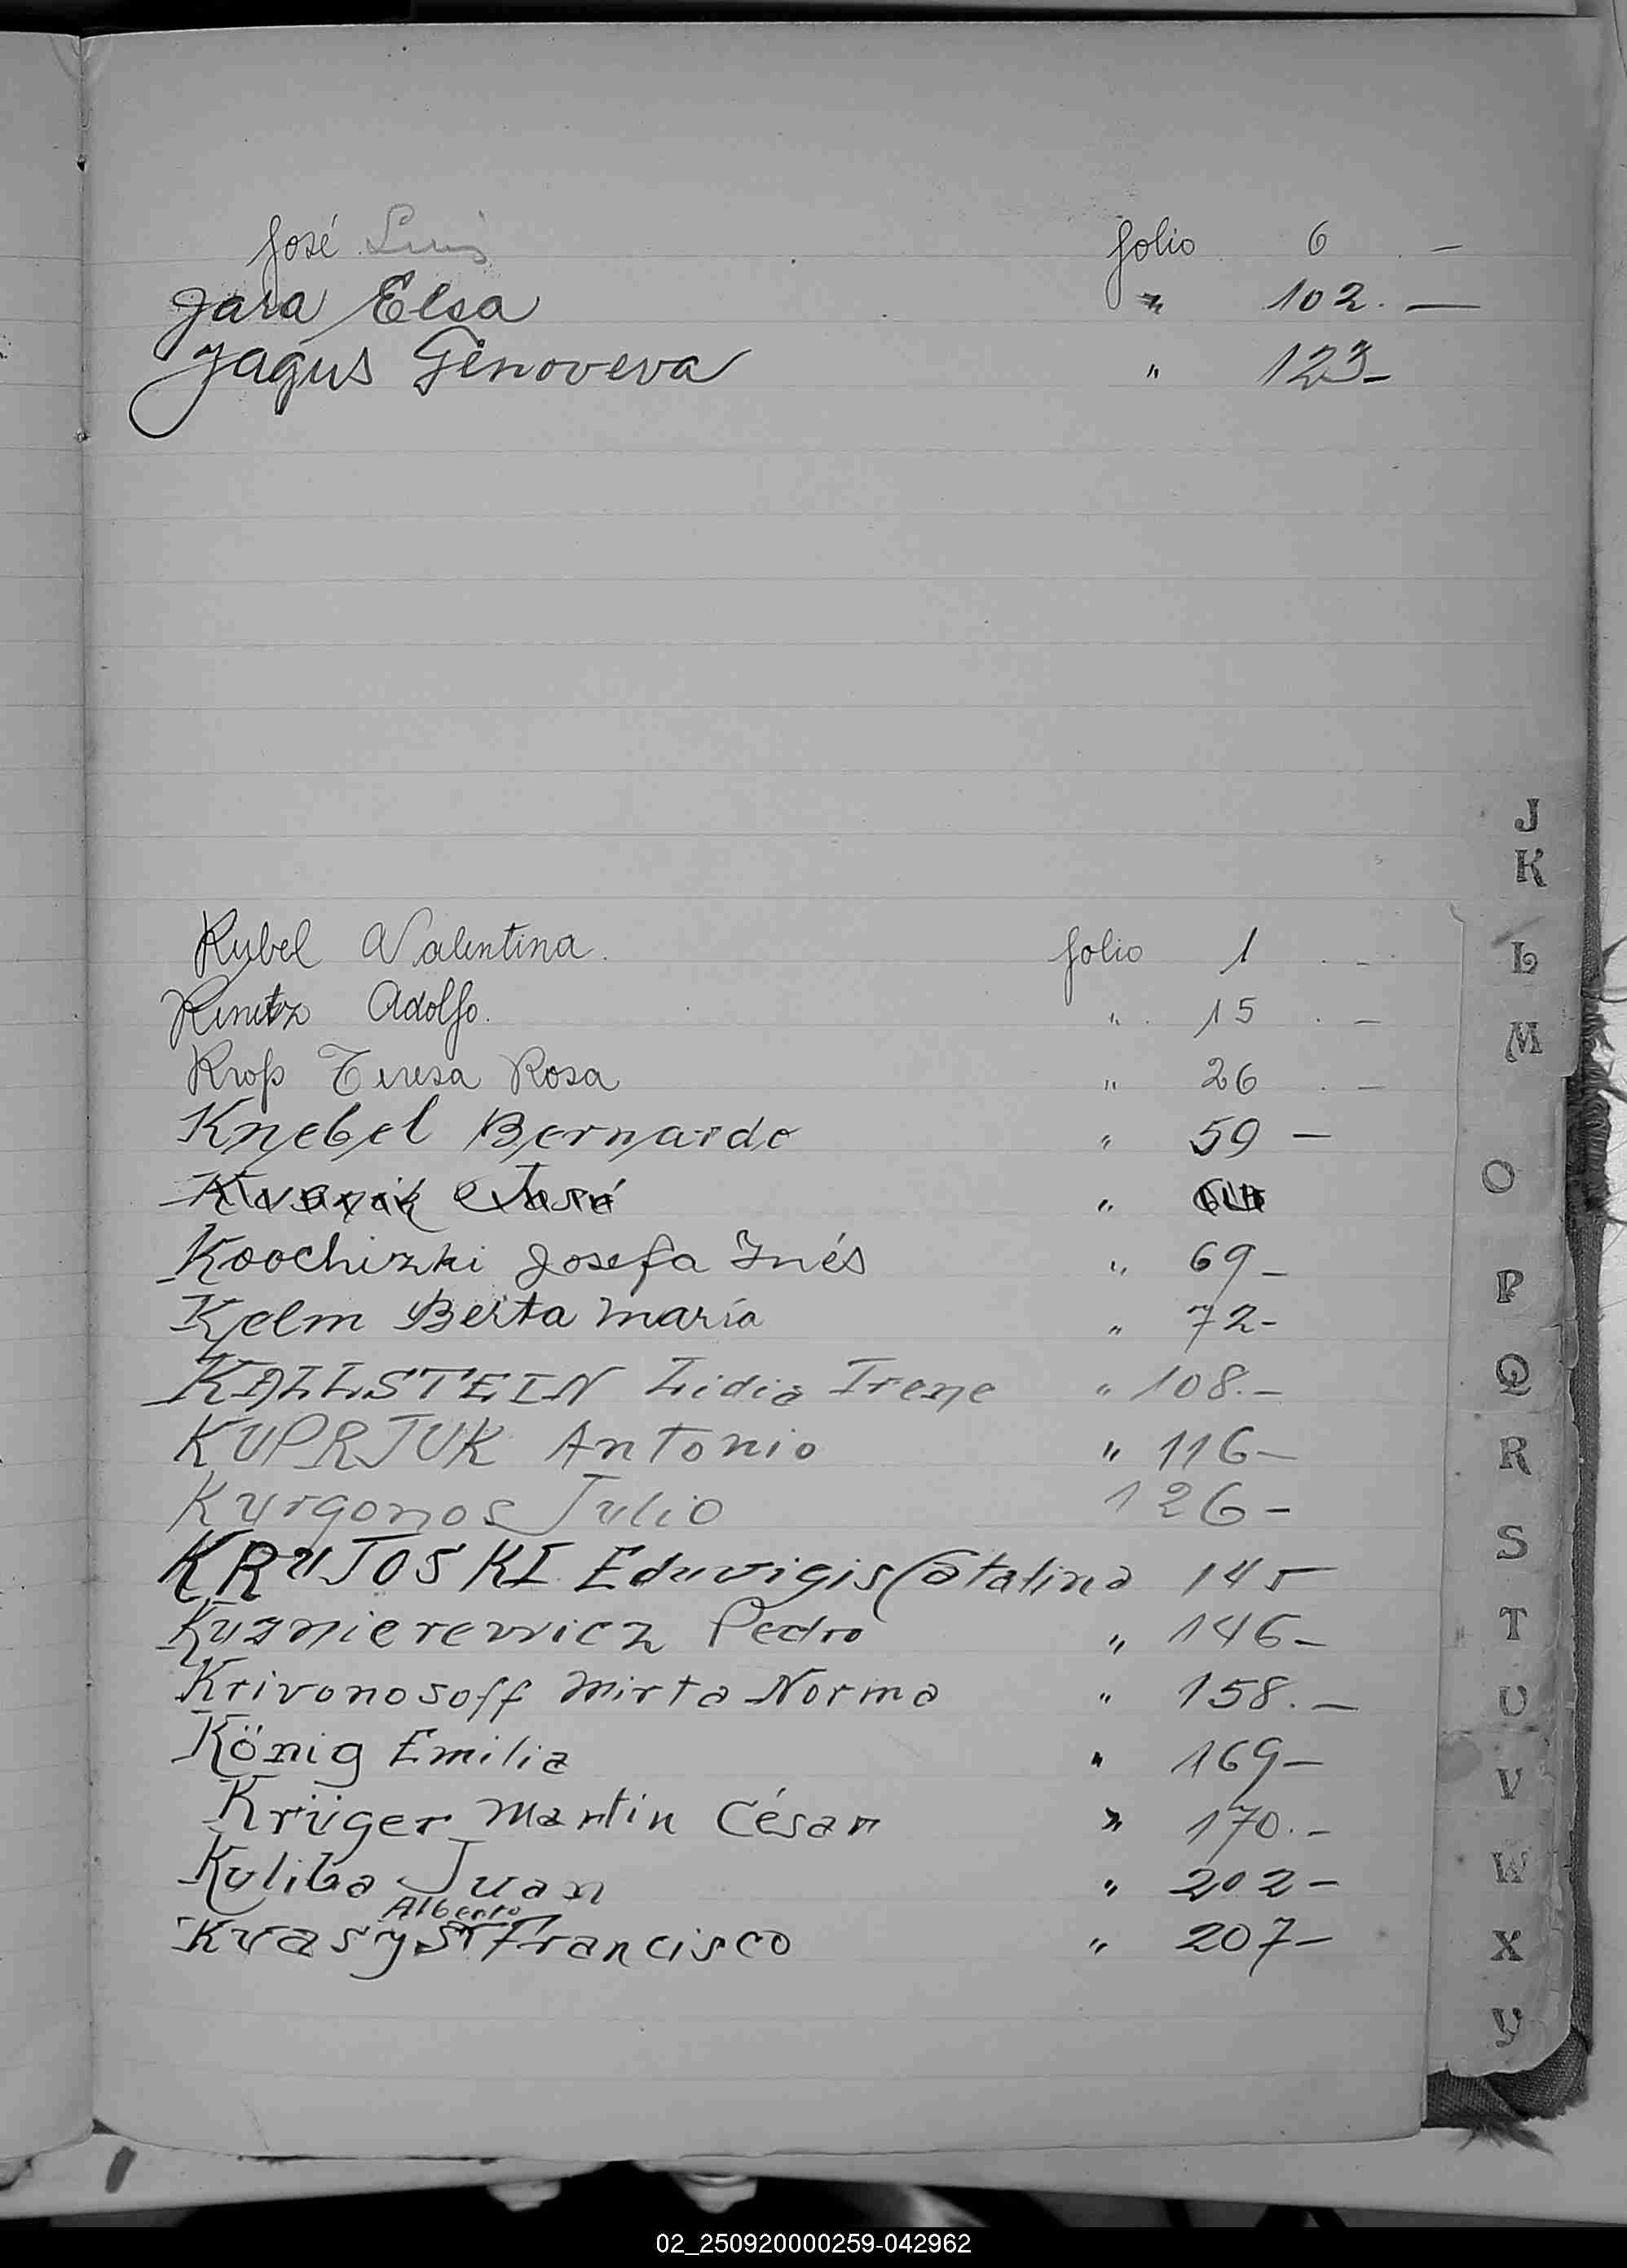 José Luis folio 6 . —
Jara Elsa " 102. —
Jagus Genoveva " 123-
J
K
Kubel Valentina. folio 1 . -
L
Kenitz Adolfo. " 15 . -
M
Krop Teresa Rosa " 26 . -
Knebel Bernardo " 59 —
O
Koochizki Josefa Inés " 69 -
P
Kelm Berta María " 72-
KALLSTEIN Lidia Irene " 108.-
Q
KUPRJUK Antonio " 116-
R
Kurgonos Julio 126-
S
KRUJOSKI Eduvigis Catalina 145
Kuznierewicz Pedro " 146-
T
Krivonosoff Mirta Norma " 158. —
U
König Emilia " 169-
V
Krüger Martin César " 170.-
Kuliba Juan " 202-
W
Alberto
Kvasyst Francisco " 207-
X
Y
02_250920000259-042962